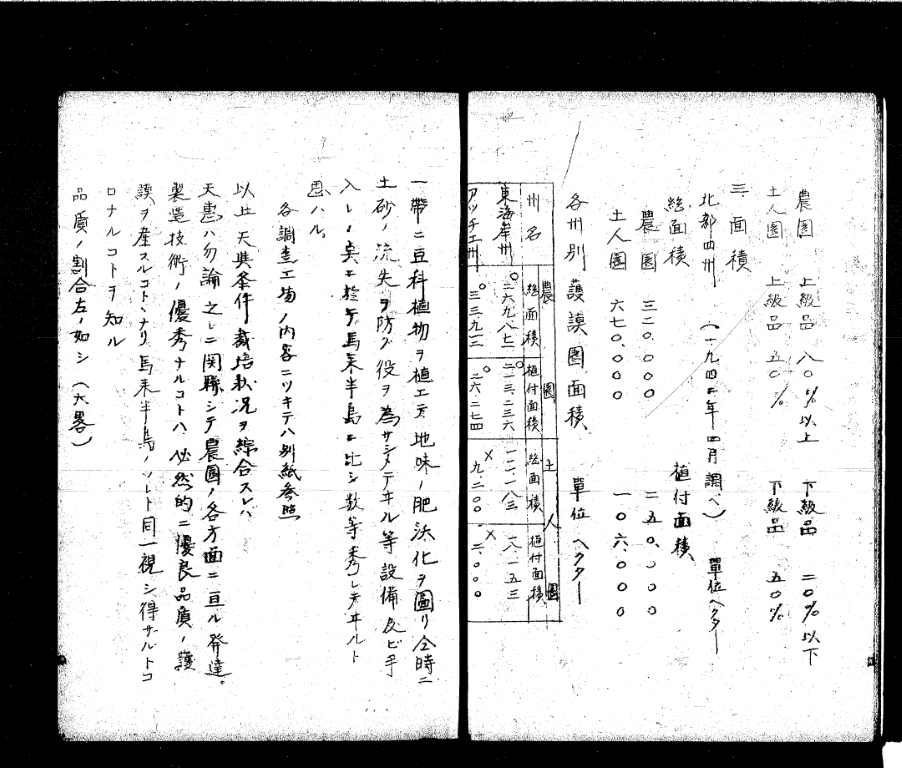 農園 上級品 八〇％以上 下級品 二〇％以下
土人園 上級品 五〇％ 下級品 五〇％
三、面積
北部四州 （一九四二年四月調ベ） 單位ヘクター
總面積 植付面積
農園 三二〇.〇〇〇 二五〇.〇〇〇
土人園 六七〇.〇〇〇 一〇六.〇〇〇
各州別 護謨園面積 單位 ヘクター
農園 土人園
州名 總面積 植付面積 總面積 植付面積
東海岸州 二六九.八七二 二一三.二三六 一一.一八三 八.一五三
アッチエ州 三三.九一二 二六.二七四 九.二〇〇 二.〇〇〇
一帶ニ豆科植物ヲ植エテ地味ノ肥沃化ヲ圖リ仝時ニ
土砂ノ流失ヲ防グ役ヲ為サシメテヰル等設備及ビ手
入レノ奌ニ於テ馬来半島ニ比シ数等秀レテヰルト
思ハル。
各調査工場ノ内容ニツキテハ別紙参照
以上 天與条件 栽培狀况ヲ綜合スレバ
天惠ハ勿論之レニ関聯シテ農園ノ各方面ニ亘ル発達。
製造技術ノ優秀ナルコトハ必然的ニ優良品質ノ護
謨ヲ産スルコトヽナリ馬来半島ノソレト同一視シ得ザルトコ
ロナルコトヲ知ル
品質ノ割合左ノ如シ（大畧）